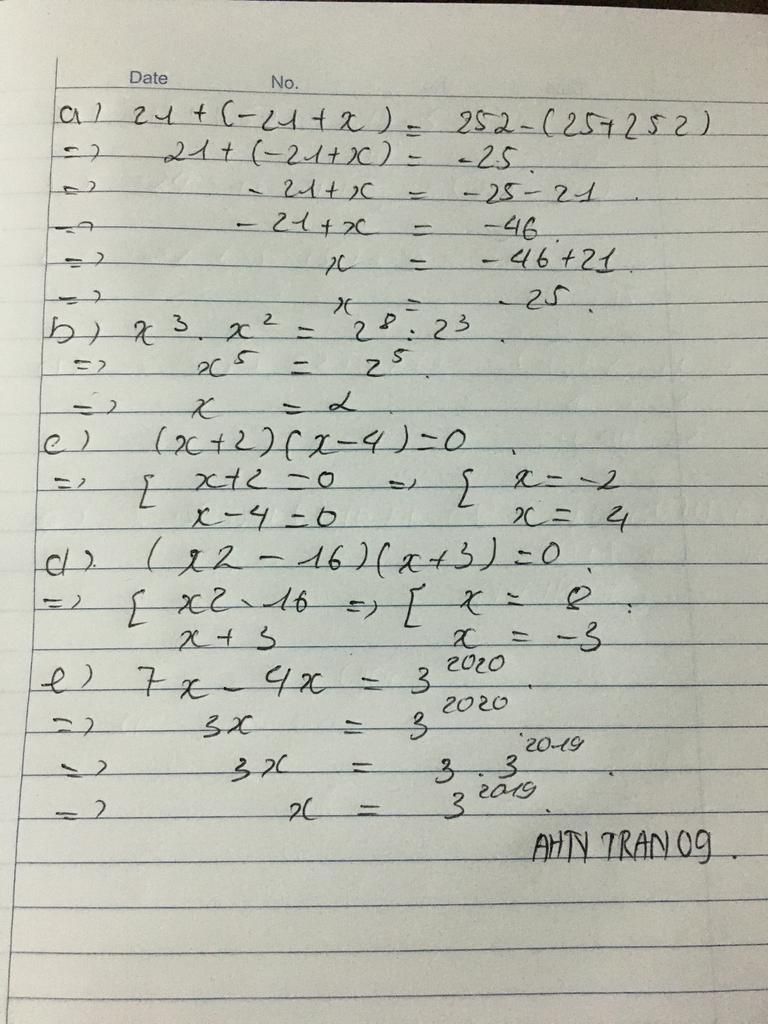 Date No.
a) 21 + (-21 + x) = 252 - (25 + 252)
=> 21 + (-21 + x) = -25.
=> - 21 + x = -25 - 21.
=> - 21 + x = -46.
=> x = -46 + 21.
=> x = -25.
b) x³ . x² = 2⁸ : 2³.
=> x⁵ = 2⁵.
=> x = 2.
c) (x + 2)(x - 4) = 0.
=> [ x + 2 = 0 => [ x = -2
x - 4 = 0 x = 4
d) (x2 - 16)(x + 3) = 0.
=> [ x2 - 16 => [ x = 8.
x + 3 x = -3
e) 7x - 4x = 3²⁰²⁰.
=> 3x = 3²⁰²⁰
=> 3x = 3 . 3²⁰¹⁹.
=> x = 3²⁰¹⁹.
AHTN TRAN 09.